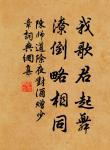 我歌君起舞
潦倒略相同
陈师道除夜对酒赠少
章词典网集